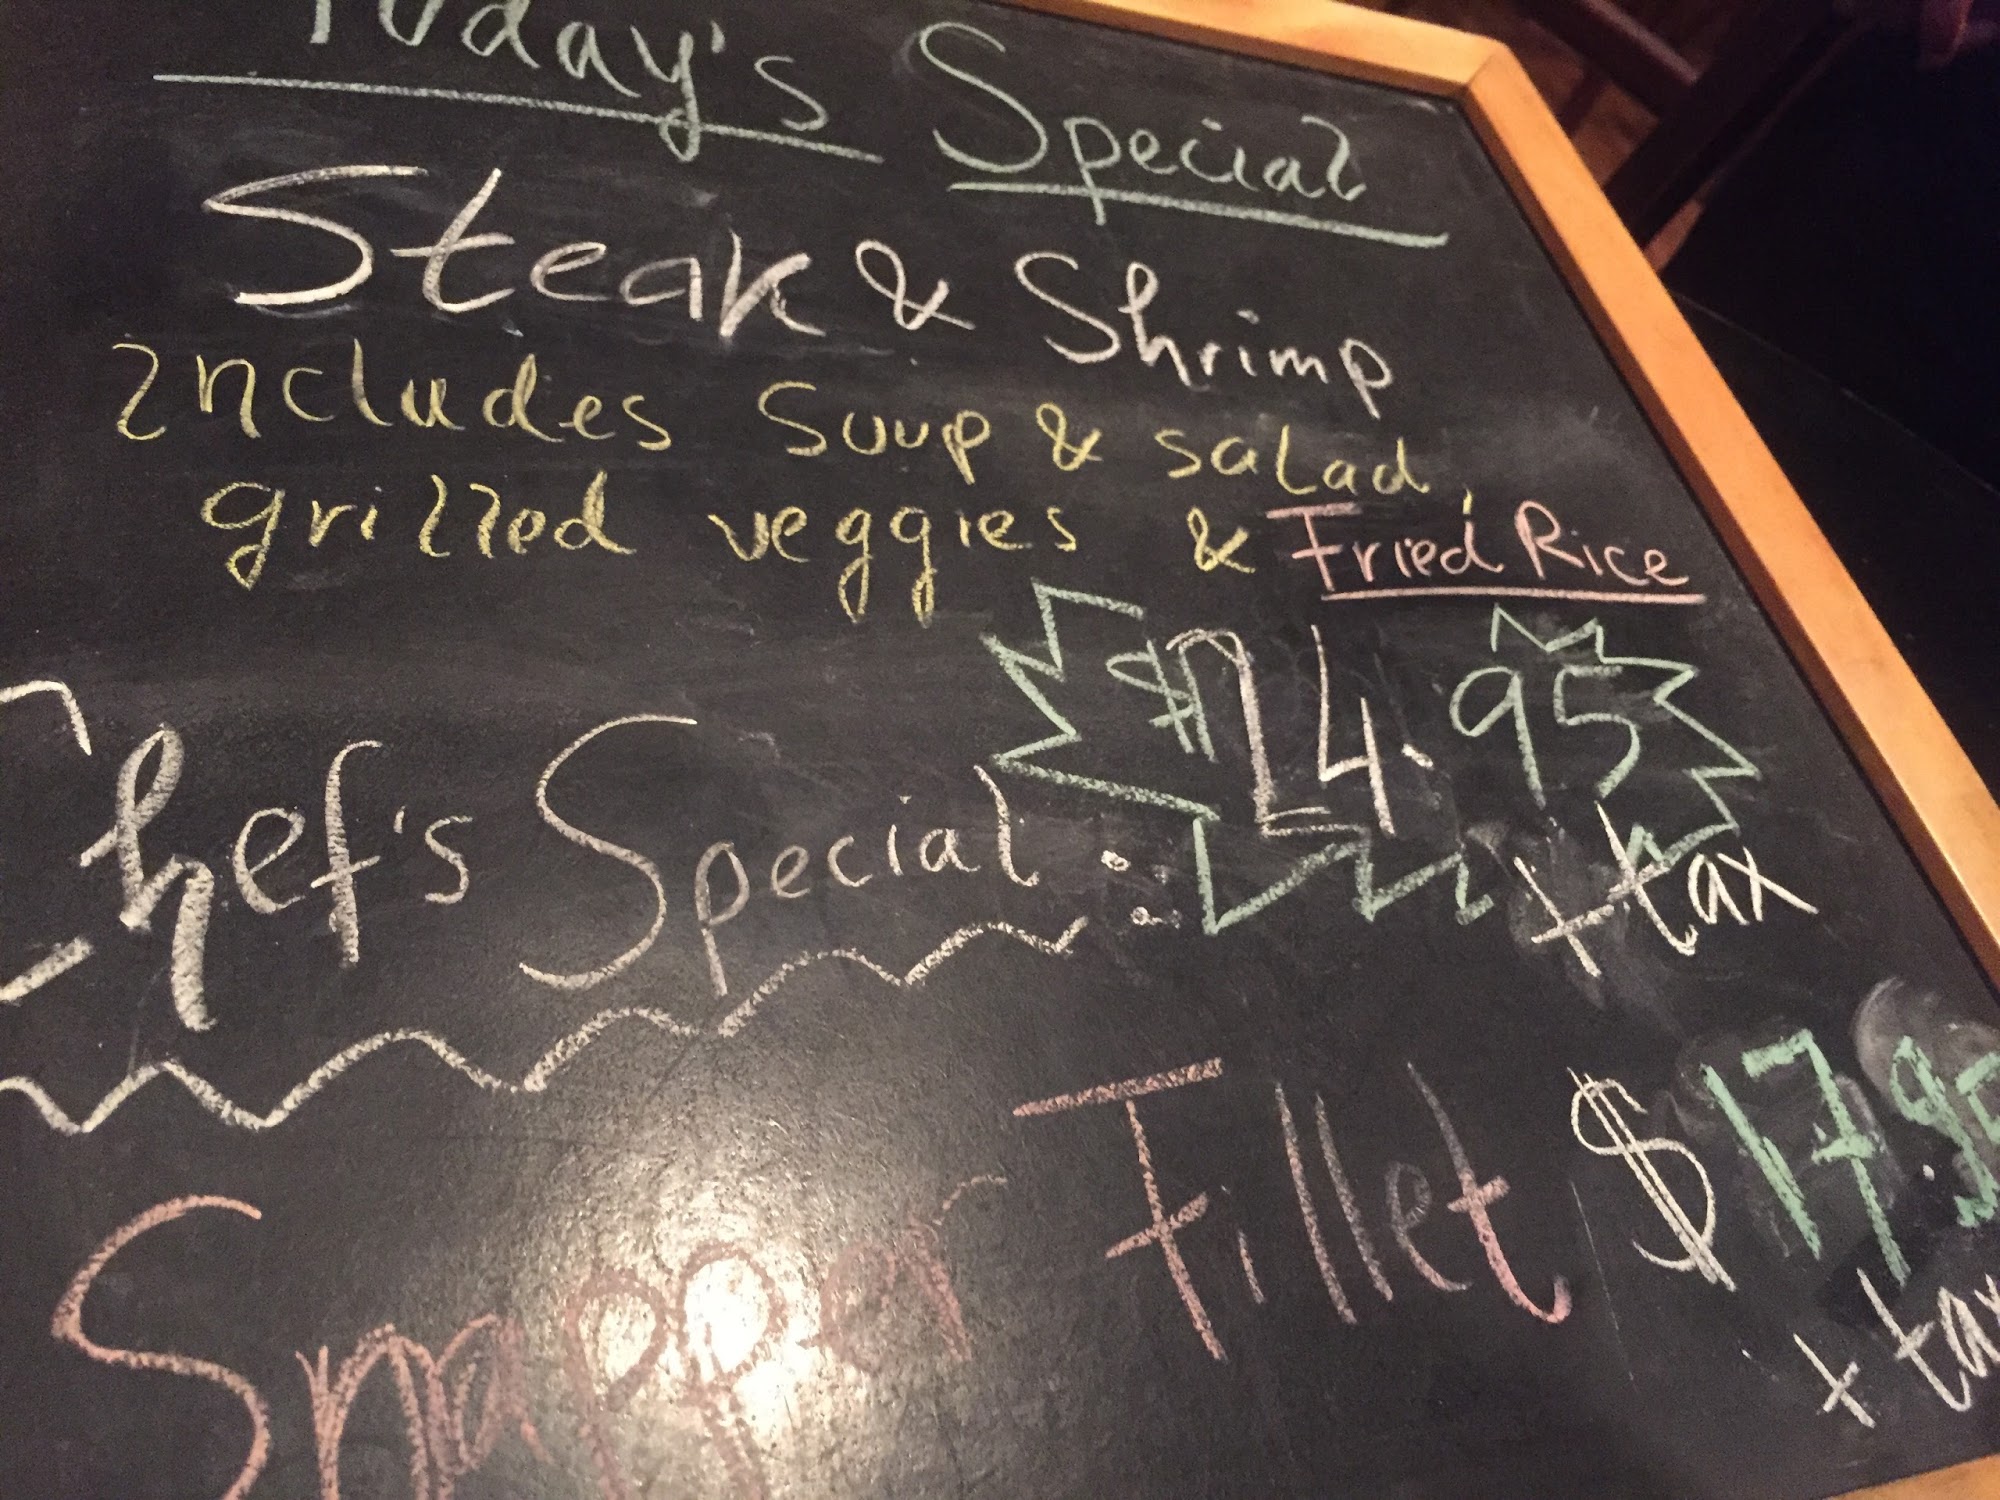 Today's Special
Steak & Shrimp
Includes Soup & salad,
grilled veggies & Fried Rice
$24.95
+ tax
Chef's Special:
Snapper Fillet $17.95
+ tax